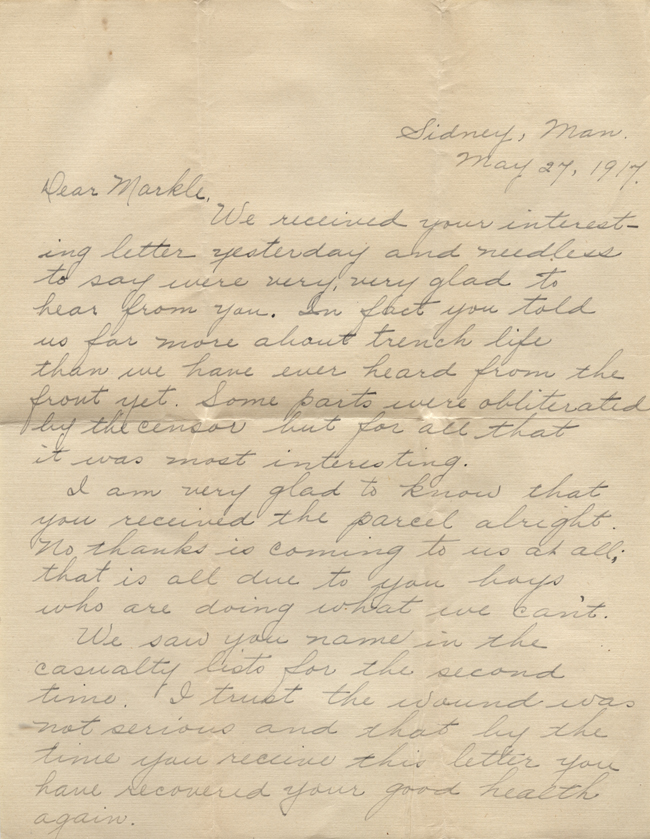 Sidney, Man.
May 27, 1917.
Dear Markle,
We received your interest-
ing letter yesterday and needless
to say were very, very glad to
hear from you. In fact you told
us far more about trench life
than we have ever heard from the
front yet. Some parts were obliterated
by the censor but for all that
it was most interesting.
I am very glad to know that
you received the parcel alright.
No thanks is coming to us at all;
that is all due to you boys
who are doing what we can't.
We saw you name in the
casualty lists for the second
time. I trust the wound was
not serious and that by the
time you receive this letter you
have recovered your good health
again.